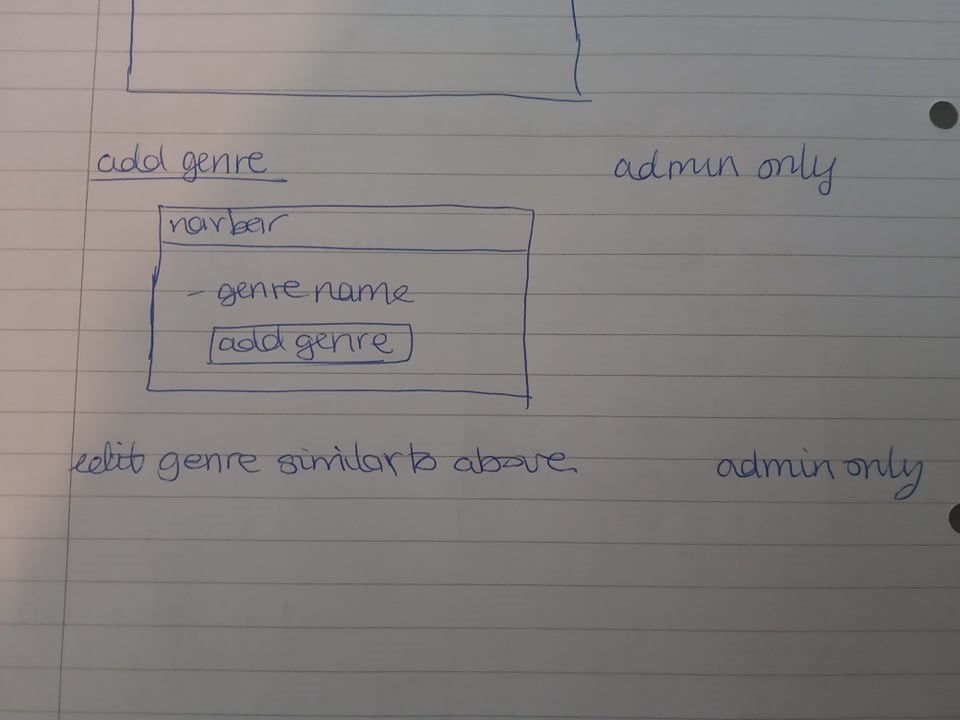 add genre admin only
navbar
- genre name
add genre
edit genre similar to above. admin only